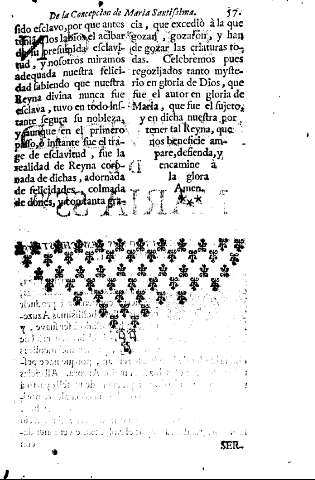 De la Concepcion de Maria Santissima. 57.
sido esclavo, por que antes
los labios el acibar
de su presumida esclavi-
tud, y nosotros miramos
adequada nuestra felici-
dad sabiendo que nuestra
Reyna divina nunca fue
esclava, tuvo en todo ins-
tante segura su nobleza,
y aunque en el primero
passo, ò instante fue el tra-
ge de esclavitud, fue la
realidad de Reyna coro-
nada de dichas, adornada
de felicidades, colmada
de dones, y con tanta gra-
cia, que excediò à la que
gozan, gozaron, y han
de gozar las criaturas to-
das. Celebremos pues
regozijados tanto myste-
rio en gloria de Dios, que
fue el autor en gloria de
Maria, que fue el sujeto,
y en dicha nuestra por
tener tal Reyna, que
nos beneficie am-
pare, defienda, y
encamine à
la gloria
Amen.
SER-